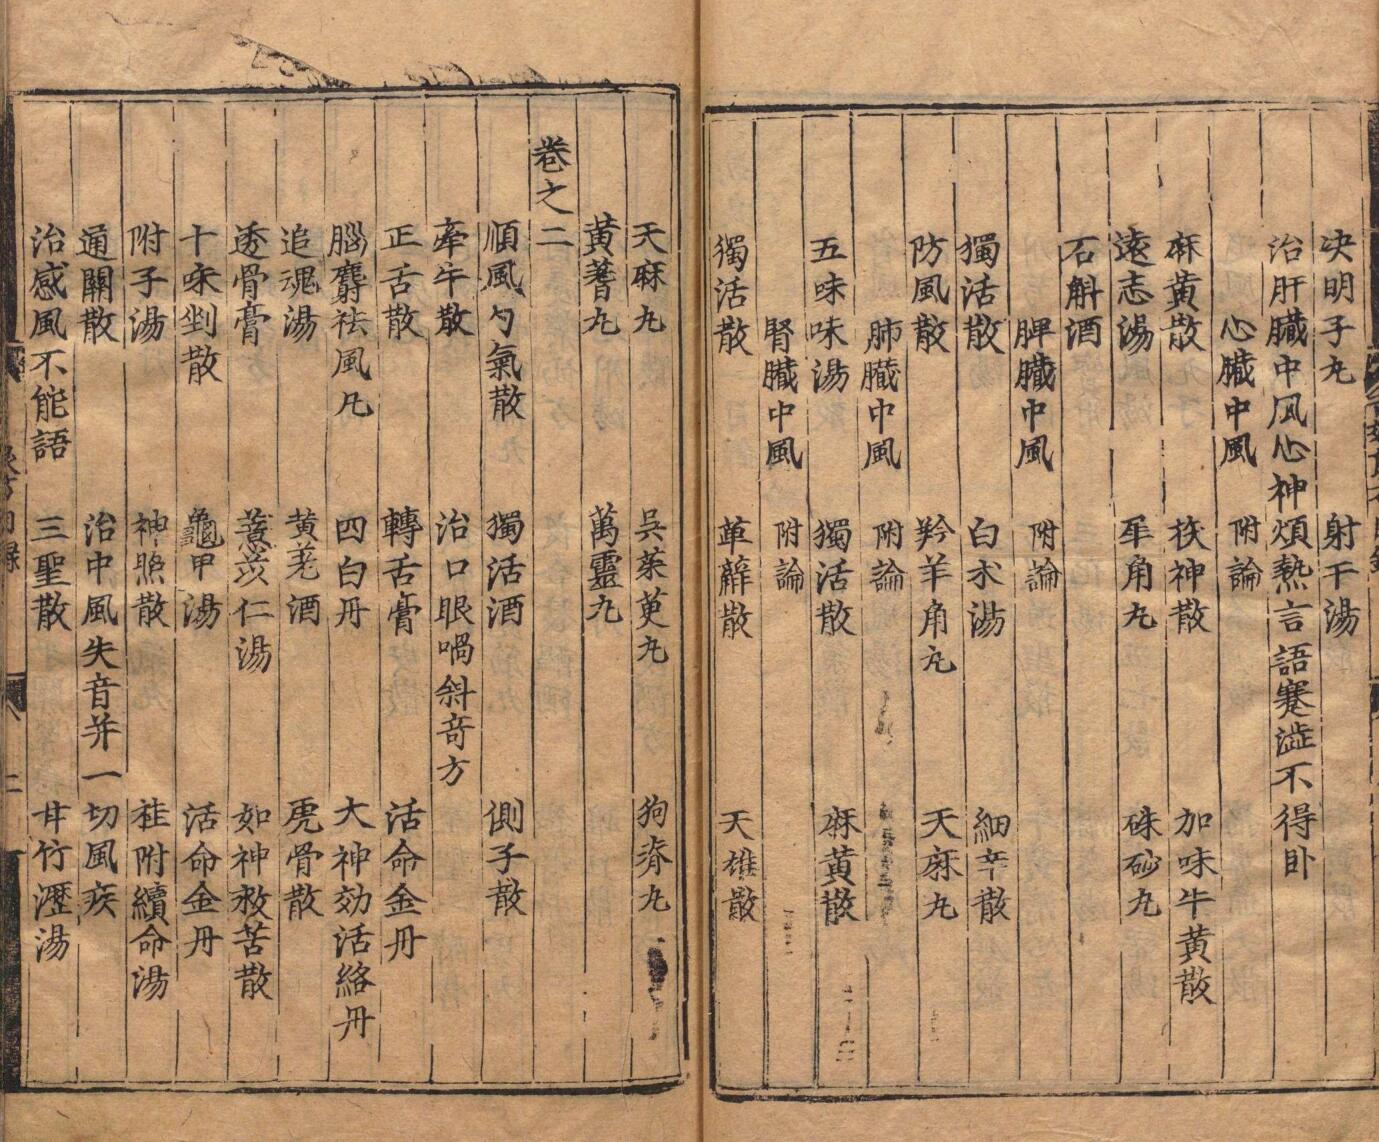 決明子丸 射干湯
治肝臟中风心神煩熱言語蹇澁不得卧
心臟中風 附論
麻黃散 茯神散 加味牛黃散
遠志湯 犀角丸 硃砂丸
石斛酒
脾臟中風 附論
獨活散 白术湯 細辛散
防風散 羚羊角丸 天麻丸
肺臟中風 附論
五味味湯 獨活散 麻黃散
腎臟中風 附論
獨活散 萆薢散 天雄散
天麻丸 吳茱萸丸 狗脊丸
黃蓍丸 萬靈丸
卷之二
順風勻氣散 獨活酒 側子散
牽牛散 治口眼喎斜竒方
正舌散 轉舌膏 活命金丹
腦麝祛風凡 四白丹 大神効活絡丹
追魂湯 黄芪酒 虎骨散
透骨膏 薏苡仁湯 如神救苦散
十味剉散 龜甲湯 活命金丹
附子湯 神照散 桂附續命湯
通關散 治中風失音并一切風疾
治感風不能語 三聖散 甘竹瀝湯
二